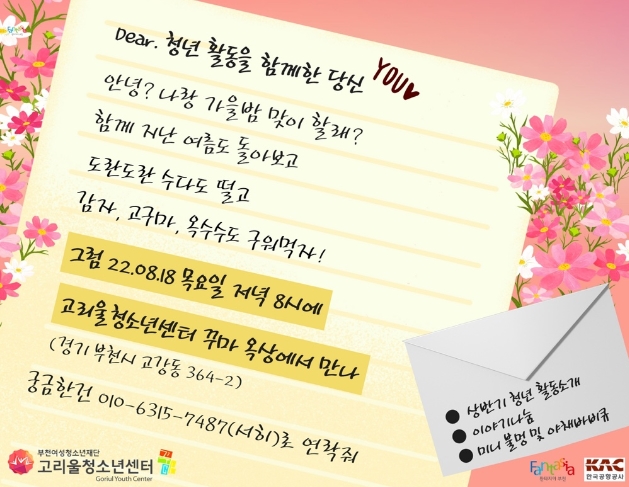 Dear. 청년 활동을 함께한 당신 YOU
안녕? 나랑 가을밤 맞이 할래?
함께 지난 여름도 돌아보고
도란도란 수다도 떨고
감자, 고구마, 옥수수도 구워먹자!
그럼 22.08.18 목요일 저녁 8시에
고리울청소년센터 꾸마 옥상에서 만나
(경기 부천시 고강동 364-2)
궁금한건 010-6315-7487(서히)로 연락줘
상반기 청년 활동소개
이야기나눔
미니 불멍 및 야채바비큐
부천여성청소년재단
고리울청소년센터
Goriul Youth Center
Fantasia
KAC
한국공항공사